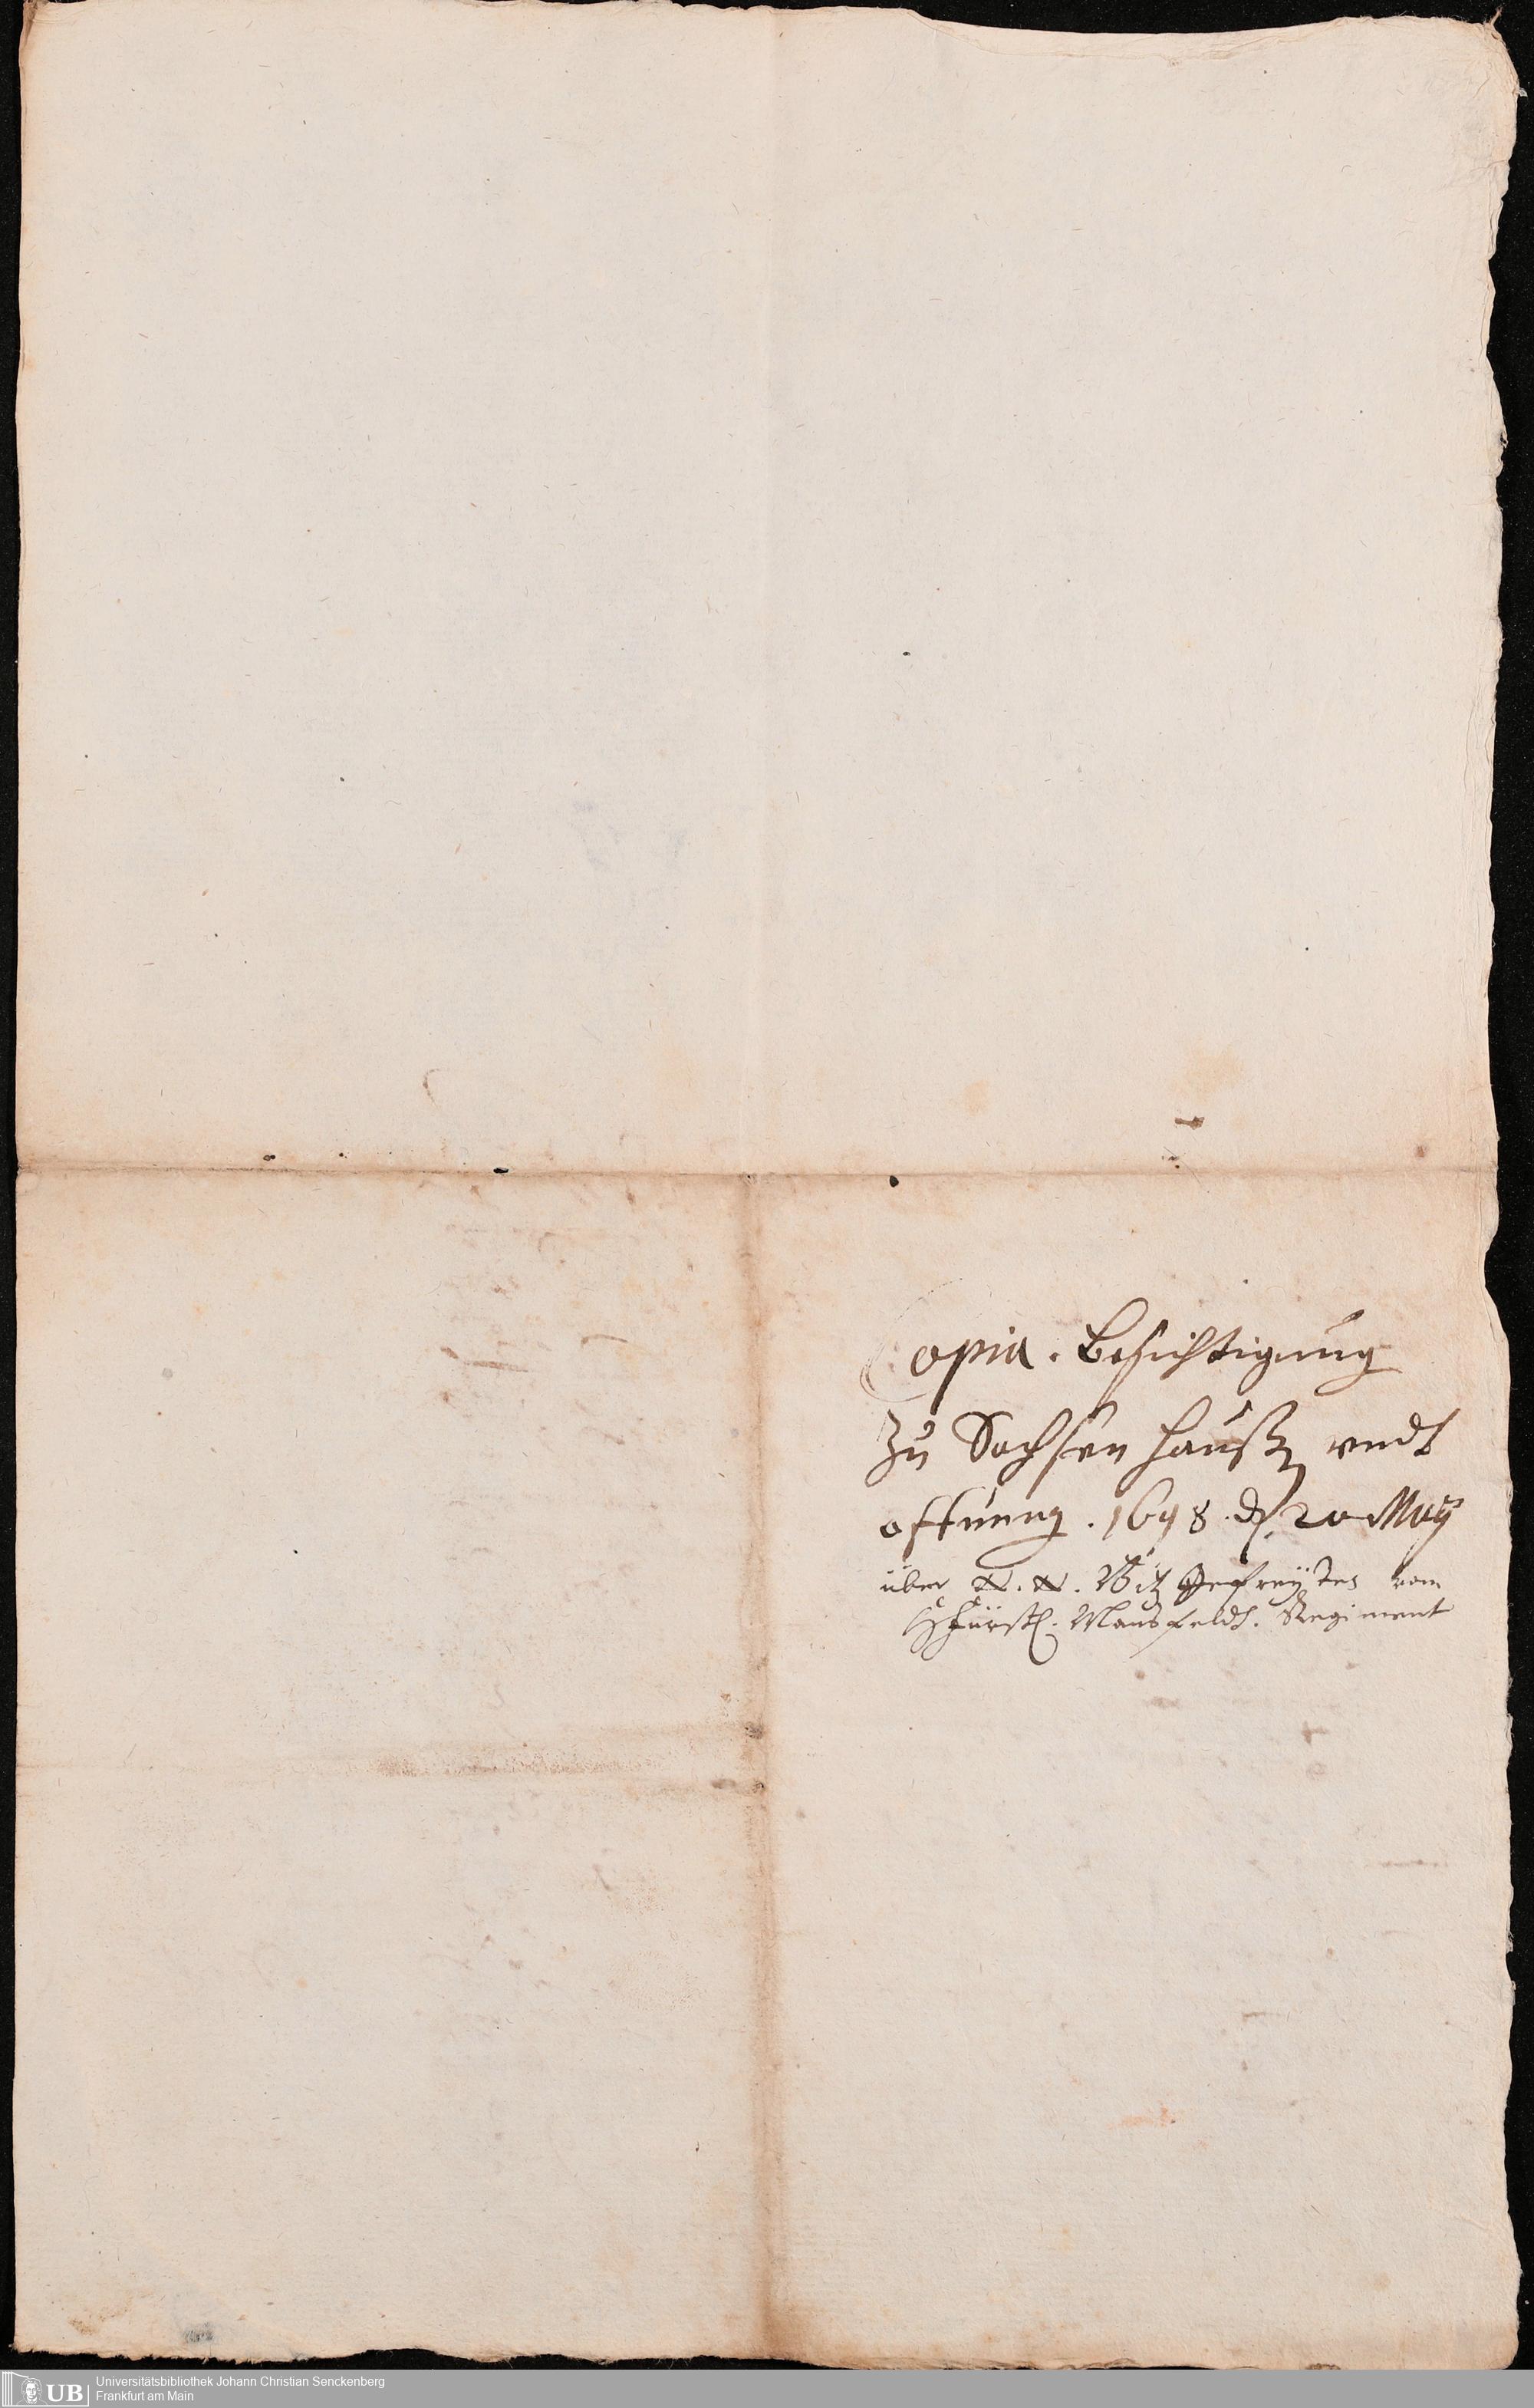 Copia. Besichtigung
zu Sachsenhaußen vndt
offnung. 1698. d. 20 May
über N. N. Witz Gefreyter vom
HFürstl. Mansfeldt. Regiment
UB Universitätsbibliothek Johann Christian Senckenberg
Frankfurt am Main